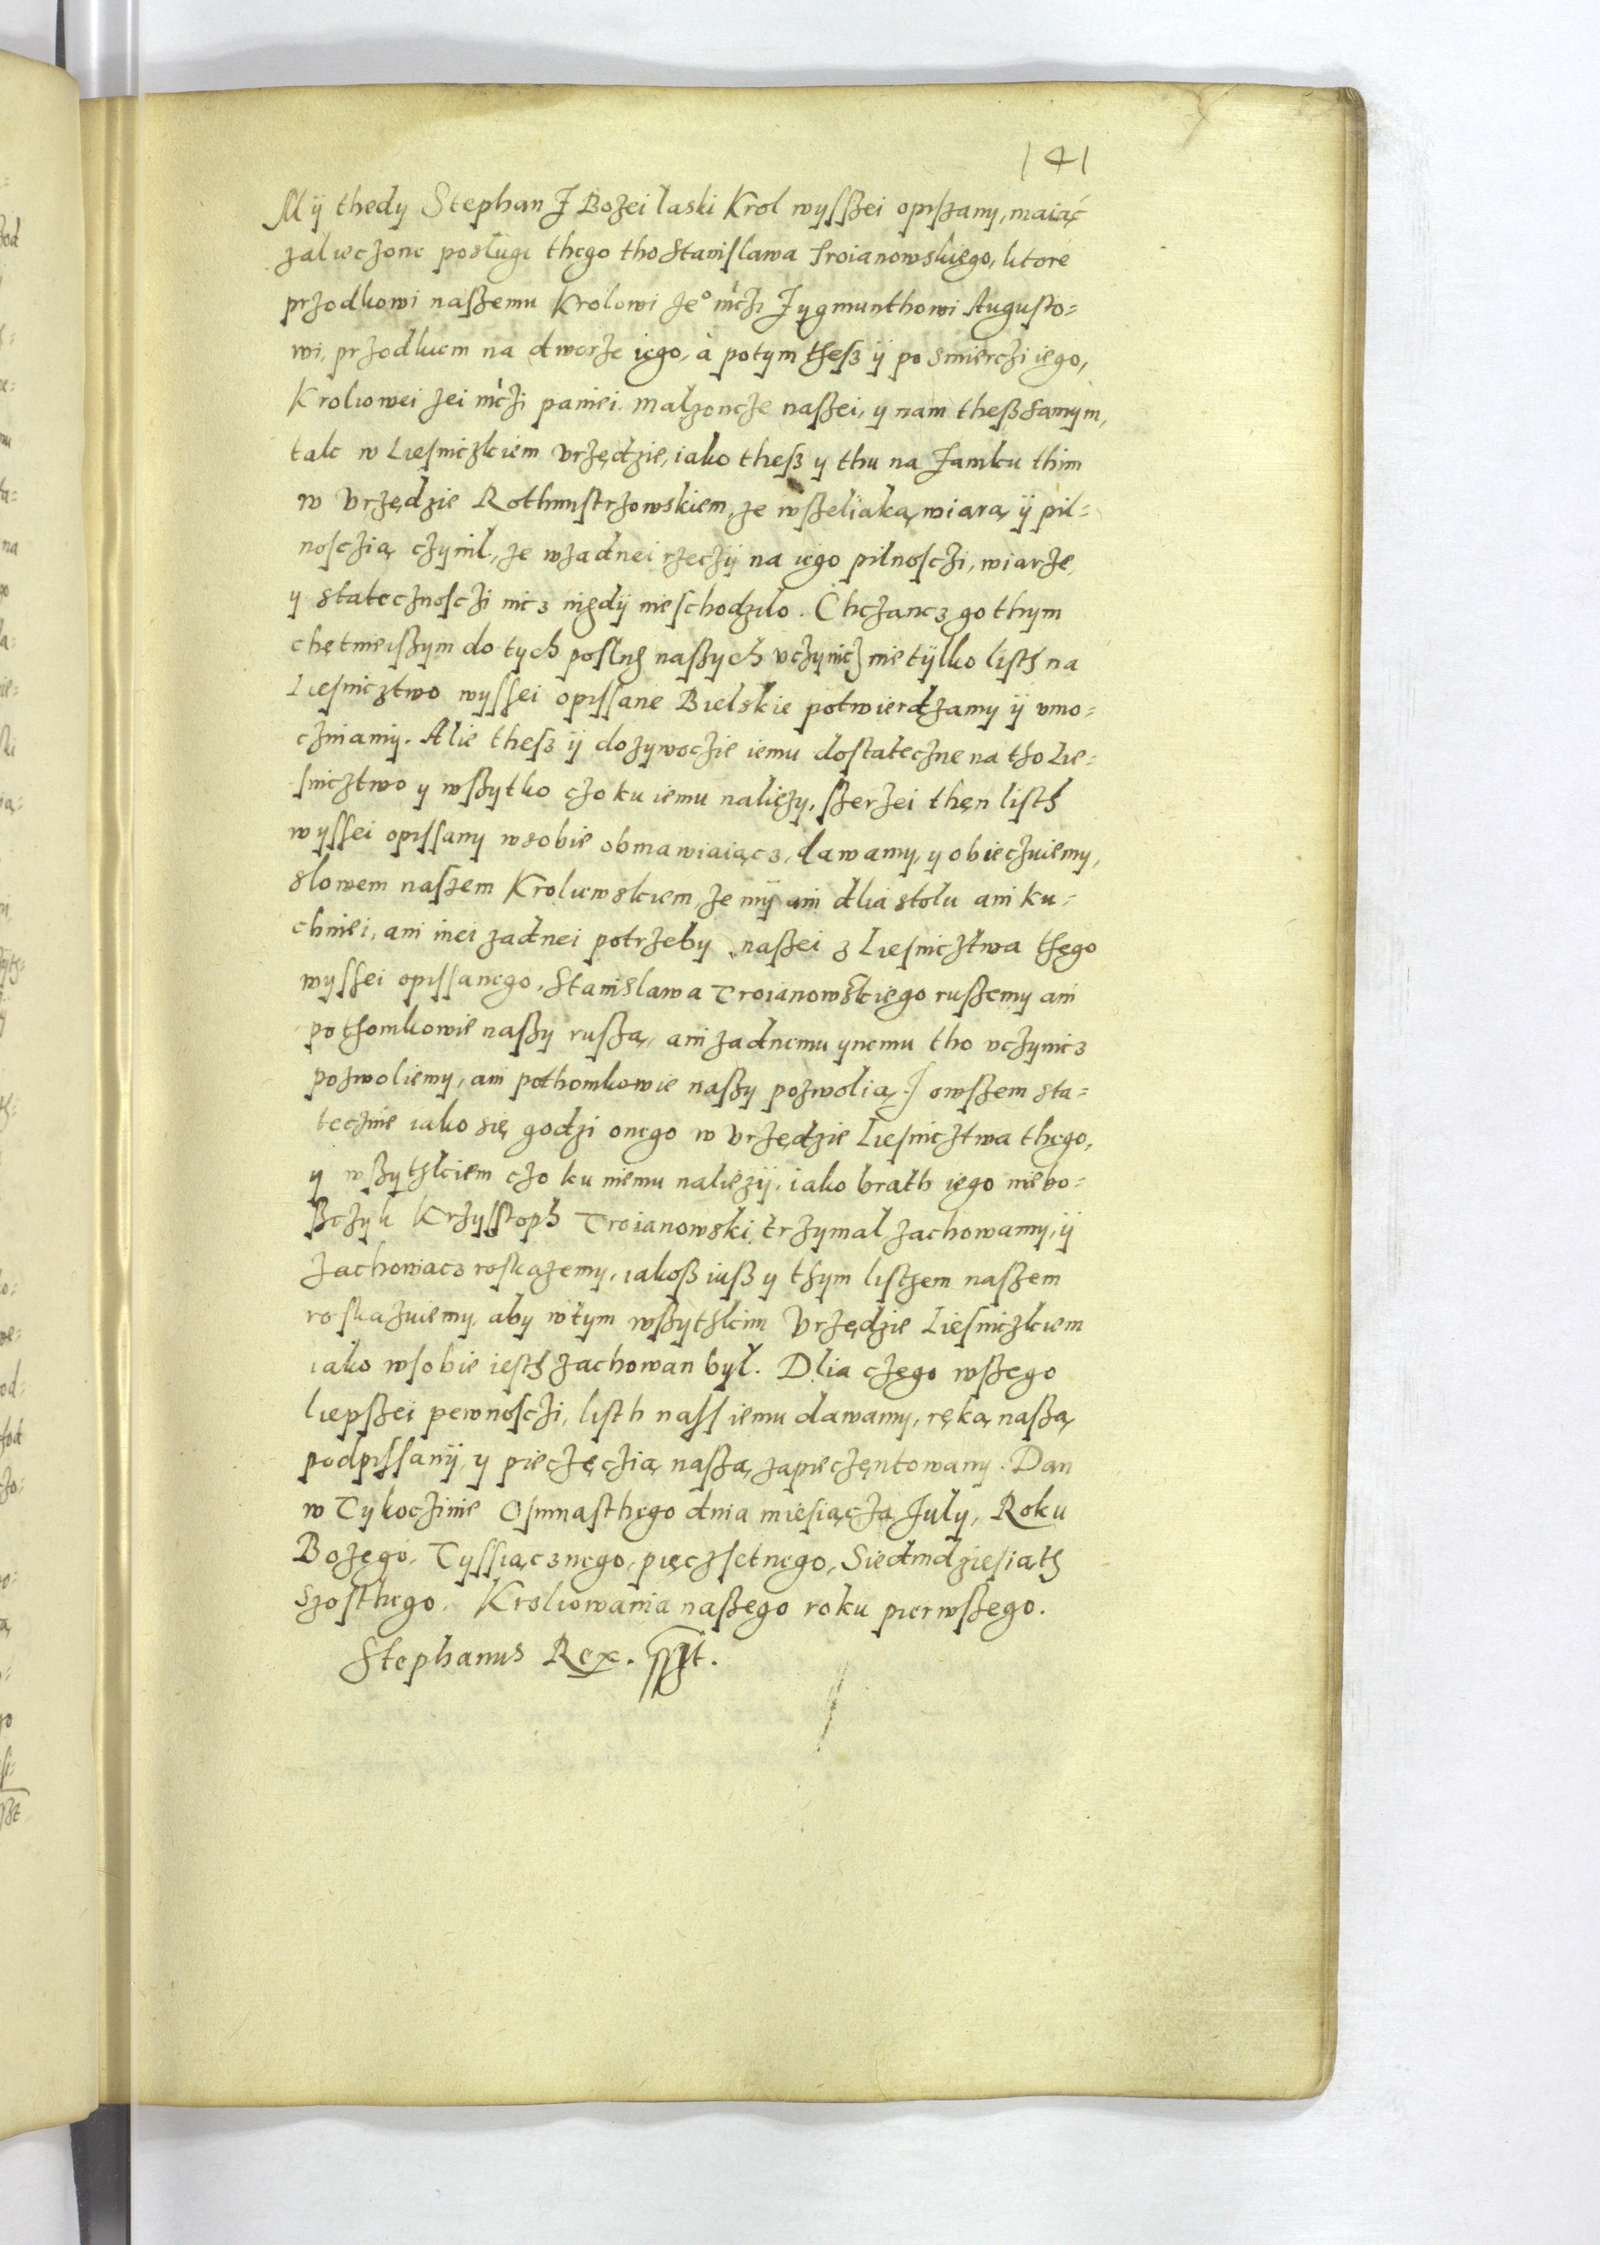 141
Mÿ thedy Stephan Z Bożei laski Krol wyssżei opisżany, maiąć
zalieczone posługi thego tho Stanislawa Troianowskiego, ktore
przodkowi naszemu Krolowi Je° mczi Zygmunthowi Augusto=
wi, przodkiem na dworze iego, à potym thesz ÿ po smierczi iego,
Krolowei Jei mczi paniei malzoncze naszei, y nam thesz samym,
tak w Liesniczkiem Vrzędzie, iako thesz y thu na Zamku thim
w Vrzędzie Rothmistrzowskiem, ze wszeliaką wiarą ÿ pil=
nosczią czynil, ze wzadnei rzeczÿ na iego pilnosczi, wiarze,
y statecznosczi nicz nigdÿ nieschodzilo. Chczancz go thym
chętnieiszym do tych poslug naszych vczynicz nie tÿlko listh na
Liesnicztwo wyssei opissane Bielskie potwierdzamy ÿ vmo=
czniamy. Alie thesz ÿ dozywoczie iemu dostateczne na tho Lie=
snicztwo y wszytko czo ku iemu naliezy, szerzei then listh
wyssei opissany wsobie obmawiaiącz, dawamy, y obieczuiemy,
slowem naszem Kroliewskiem ze mÿ ani dlia stolu ani ku=
chniei, ani inei zadnei potrzeby naszei z Liesnicztwa thego
wyssei opissanego, Stanislawa Troianowskiego ruszemy ani
pothomkowie naszy ruszą, ani zadnemu ynemu tho vczynicz
pozwoliemy, ani pothomkowie naszy pozwolią. J owszem sta=
tecznie iako się godzi onego w Vrzędzie Liesnicztwa thego,
y wszythkiem czo ku niemu naliezÿ, iako brath iego niebo=
szczyk Krzysstoph Troianowski trzymal zachowamy, ÿ
zachowacz roskazemy, iakosz iusz y thym listzem naszem
roskazuiemy, aby wtym wszythkim Vrzędzie Liesniczkiem
iako wsobie iesth zachowan był. Dlia czego wszego
liepszei pewnosczi, listh nass iemu dawamy, ręką naszą
podpissanÿ, y pieczęczią naszą zapieczęntowany. Dan
w Tykoczinie Osmnasthego dnia miesiącza July, Roku
Bożego, Tyssiącznego, pięczsetnego, Siedmdziesiąth
szosthego. Kroliowania naszego roku pierwszego.
Stephanus Rex. sszt.